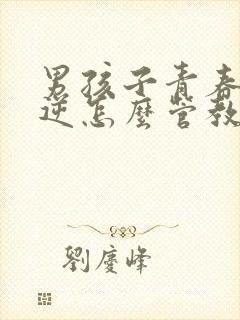 男孩子青春
逆怎麼管教
劉慶峰